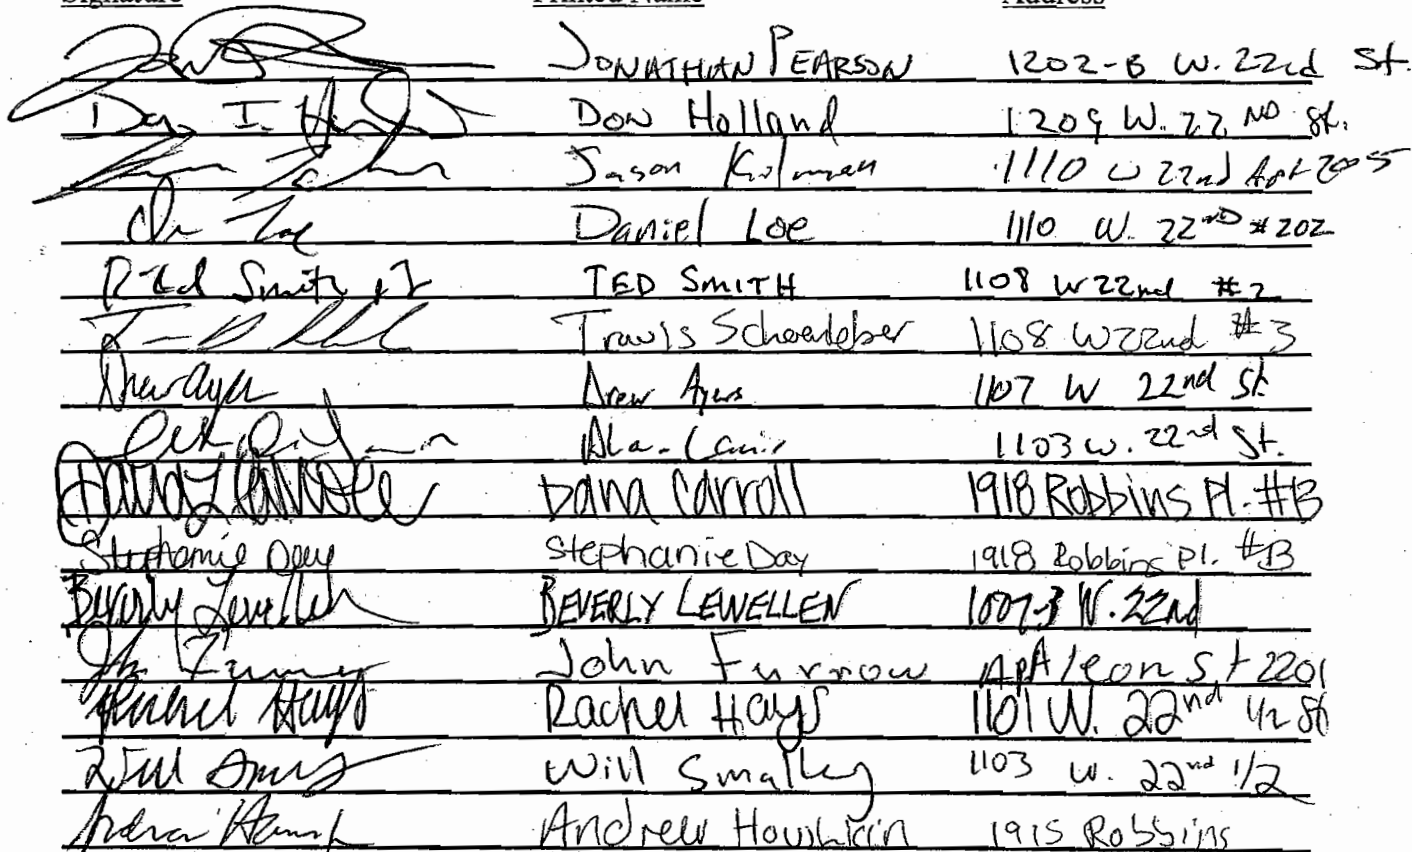 Signature Printed Name Address
JONATHAN PEARSON 1202-B W. 22nd St.
Don Holland 1209 W. 22 ND St.
Jason 1110 W 22nd Apt 2005
Daniel Loe 1110 W. 22ND #202
Smith TED SMITH 1108 W 22nd #2
Travis 1108 W 22nd #3
Drew Ayers Drew Ayers 1107 W 22nd St.
1103 W. 22nd St.
Dana Carroll 1918 Robbins Pl. #B
Stephanie Day Stephanie Day 1918 Robbins Pl. #B
Beverly Lewellen BEVERLY LEWELLEN 1007-3 W. 22nd
John Furrow Apt A leon St 2201
Rachel Hays Rachel Hays 1101 W. 22nd 1/2 St
Will Smalley 1103 W. 22nd 1/2
Andrew 1915 Robbins